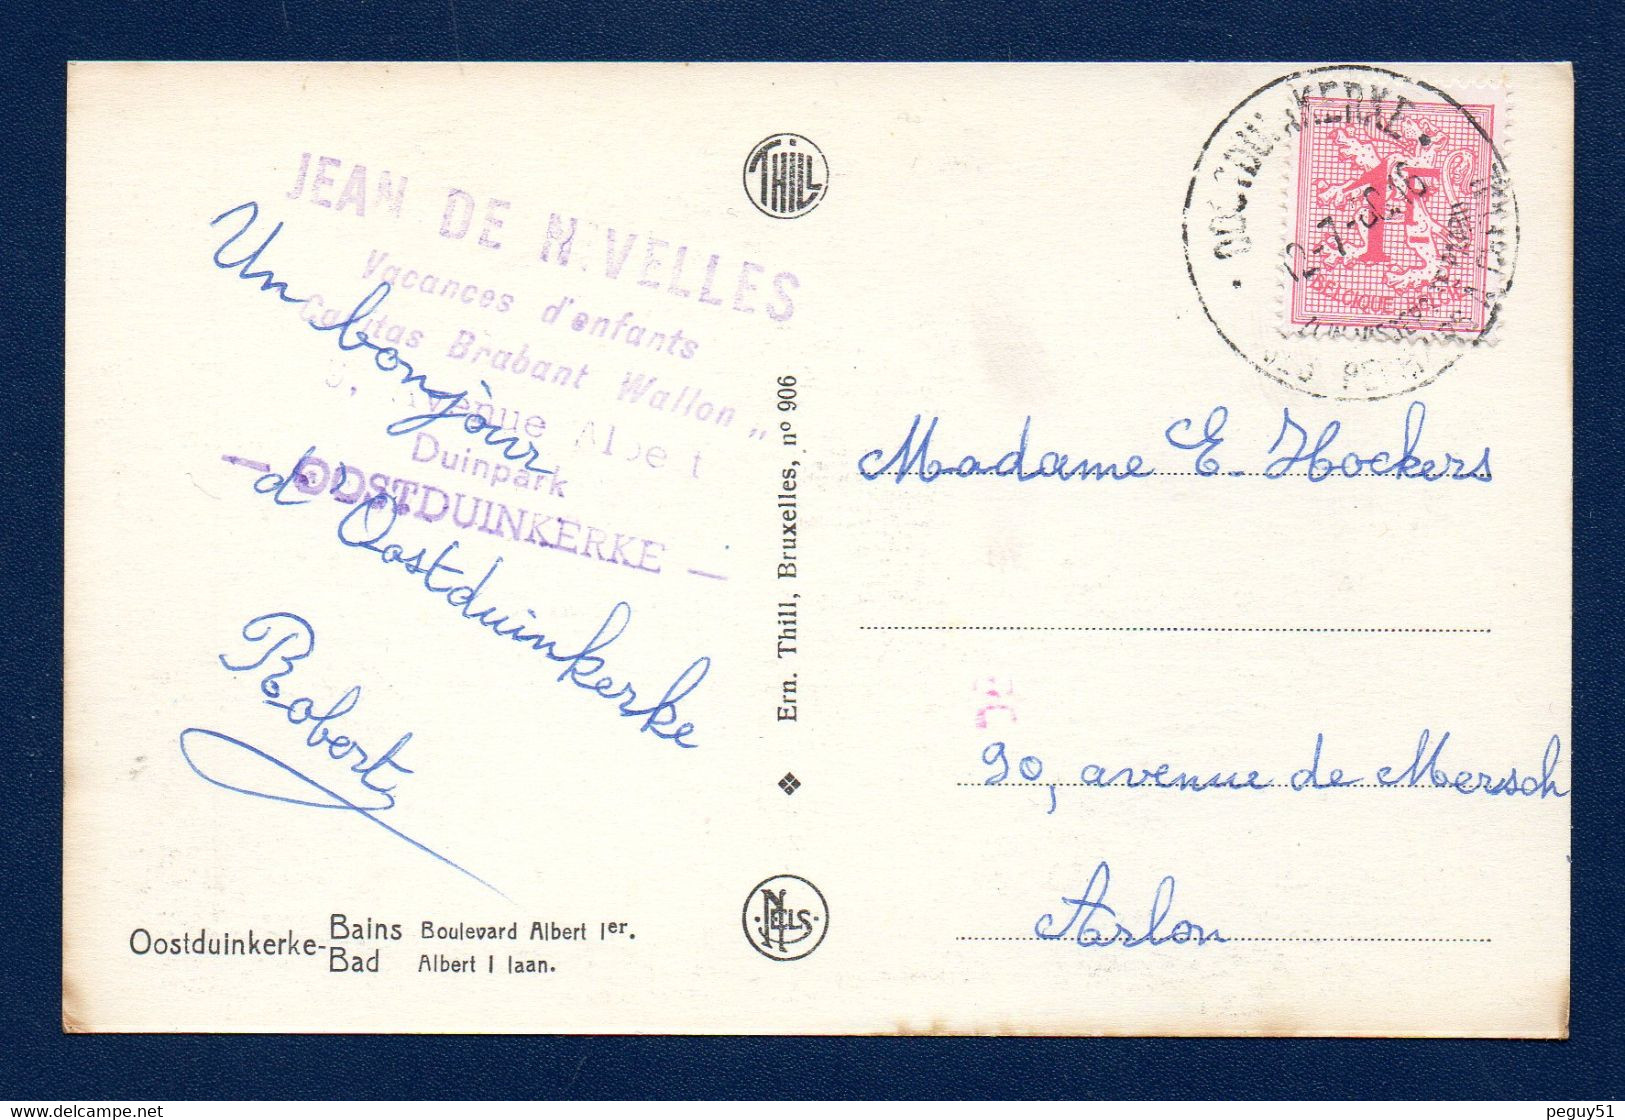 JEAN DE NIVELLES
Vacances d'enfants
Caritas Brabant Wallon "
Avenue Albert
Duinpark
— OOSTDUINKERKE —
Un bonjour
d'Oostduinkerke
Robert
Oostduinkerke-
Bains Boulevard Albert 1er.
Bad Albert I laan.
THILL
Ern. Thill, Bruxelles, nº 906
NELS
OOSTDUINKERKE
BELGIQUE BELGIE
Madame E. Hockers
90, avenue de Mersch
Arlon
peguy51